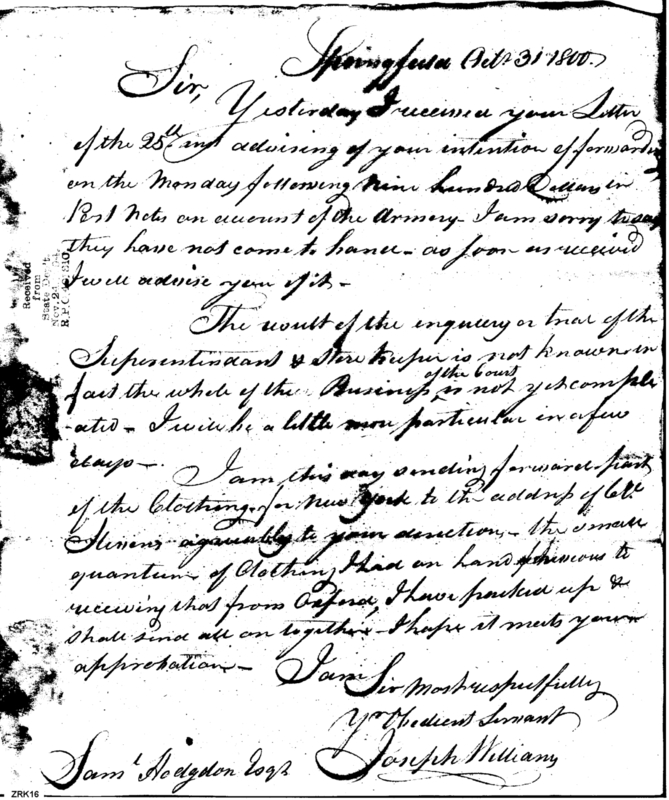 Springfield Octr 31 1800.
Sir,
Yesterday I received your Letter
of the 25th inst advising of your intention of forwarding
on the Monday following Nine hundred Dollars in
Post Notes on account of the Armory - I am sorry to say
they have not come to hand - as soon as received
I will advise you of it -
The result of the enquiry or trial of the
Superentindant & Store Keeper is not known - in
of the Court
fact the whole of the Business is not yet comple
-ated - I will be a little more particular in a few
days -.
I am this day sending forward part
of the Clothing for New York to the address of Col
Stevens agreeably to your direction - the small
quantum of Clothing I had on hand previous to
receiving that from Oxford, I have packed up &
shall send all on together - I hope it meets your
approbation -
I am
Sir Most respectfully
Yr Obedient Servant
Joseph Williams
Saml Hodgdon Esqr
Received
from
State Dep't
Nov. 24
R.P.C.
ZRK16